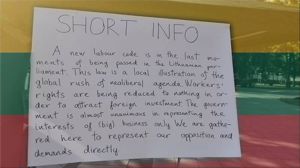 SHORT INFO
A new labour code is in the last mo-
ments of being passed in the Lithuanian par-
liament. This law is a local illustration of the
global rush of neoliberal agenda. Workers'
rights are being reduced to nothing in or-
der to attract foreign investment. The govern-
ment is almost unanimous in representing the
interests of (big) business only. We are gathe-
red here to represent our opposition and
demands directly.